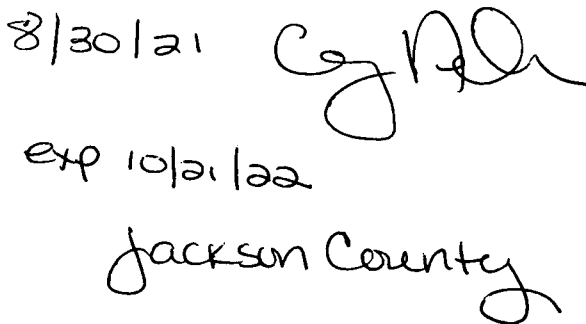 8/30/21
exp 10/21/22
Jackson County